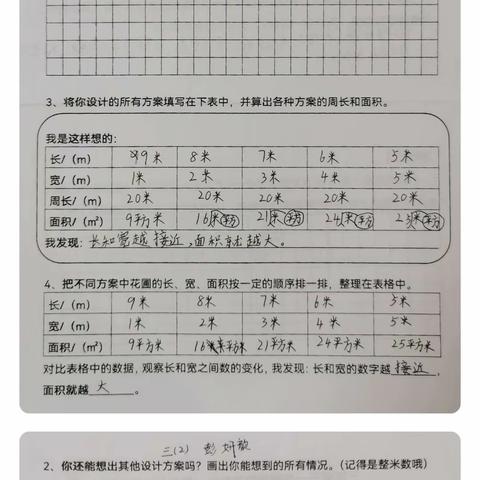 3、将你设计的所有方案填写在下表中，并算出各种方案的周长和面积。
我是这样想的:
长/（m） 9米 8米 7米 6米 5米
宽/（m） 1米 2米 3米 4米 5米
周长/（m） 20米 20米 20米 20米 20米
面积/（m²） 9平方米 16平方米 21平方米 24平方米 25平方米
我发现: 长和宽越接近,面积就越大。
4、把不同方案中花圃的长、宽、面积按一定的顺序排一排，整理在表格中。
长/（m） 9米 8米 7米 6米 5米
宽/（m） 1米 2米 3米 4米 5米
面积/（m²） 9平方米 16平方米 21平方米 24平方米 25平方米
对比表格中的数据，观察长和宽之间数的变化，我发现：长和宽的数字越 接近 ，
面积就越 大 。
三(2) 彭妍
2、你还能想出其他设计方案吗？画出你能想到的所有情况。（记得是整米数哦）